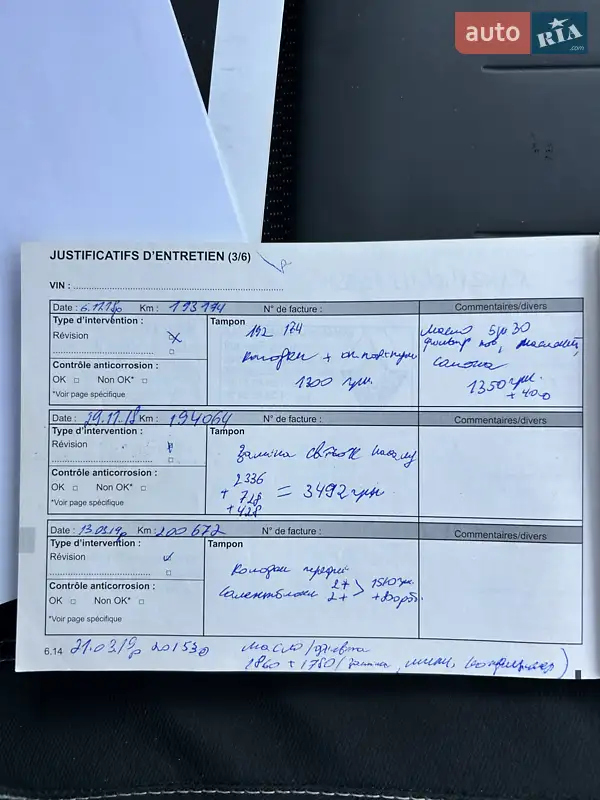 auto RIA .com
JUSTIFICATIFS D'ENTRETIEN (3/6)
VIN :
Date : 6.11.18р Km : 193174 N° de facture : Commentaires/divers
Type d'intervention :
Révision
Contrôle anticorrosion :
OK Non OK*
*Voir page spécifique
Tampon
192 174
колодки +
1300 грн.
Масло 5w30
салона
1350 грн.
+ 400
Date : 29.11.18 Km : 194064 N° de facture : Commentaires/divers
Type d'intervention :
Révision
Contrôle anticorrosion :
OK Non OK*
*Voir page spécifique
Tampon
Заміна свічок
2336
+ 728 = 3492 грн
+ 428
Date : 13.03.19р Km : 200672 N° de facture : Commentaires/divers
Type d'intervention :
Révision
Contrôle anticorrosion :
OK Non OK*
*Voir page spécifique
Tampon
Колодки передні
Салентблоки 2+
2+
6.14 21.03.19р 201530 масло/
1860 + 1750/заміна